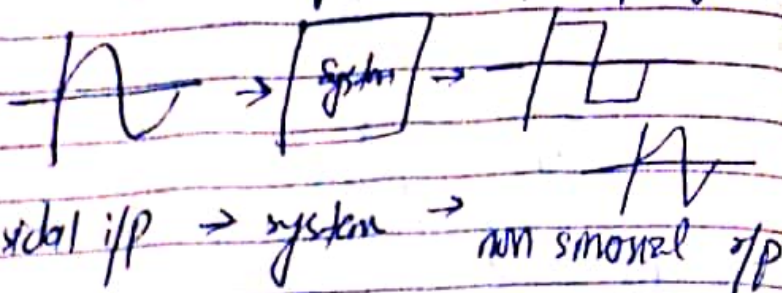 → system →
sidal i/p → system → non sinosial o/p